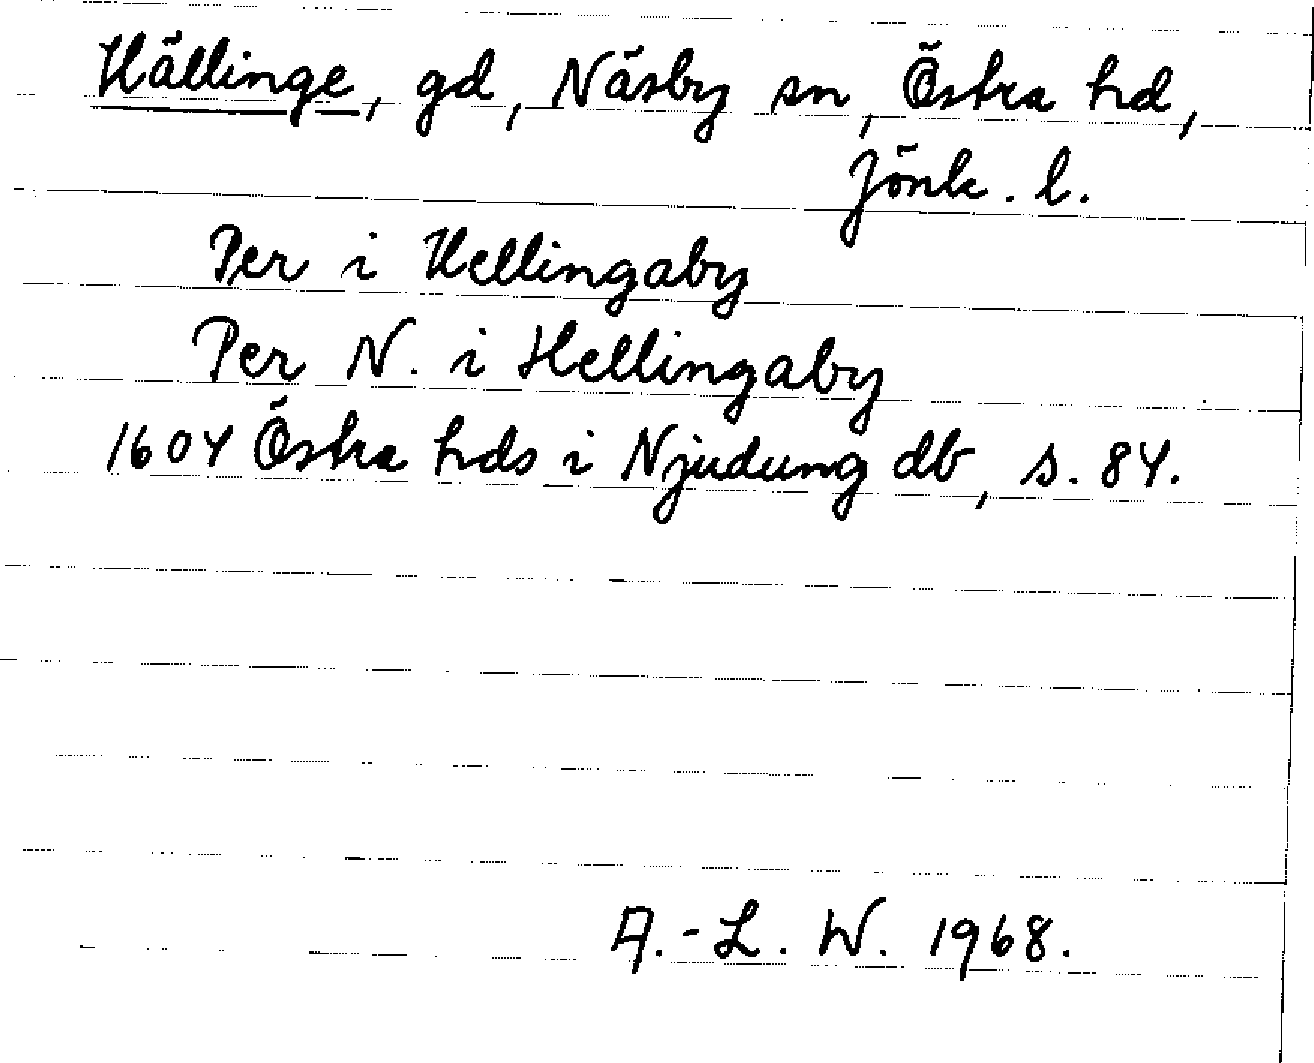 Hällinge, gd, Näsby sn, Östra hd,
Jönk. l.
Per i Hellingaby
Per N. i Hellingaby
1604 Östra hds i Njudung db, s. 84.
A.-L. W. 1968.